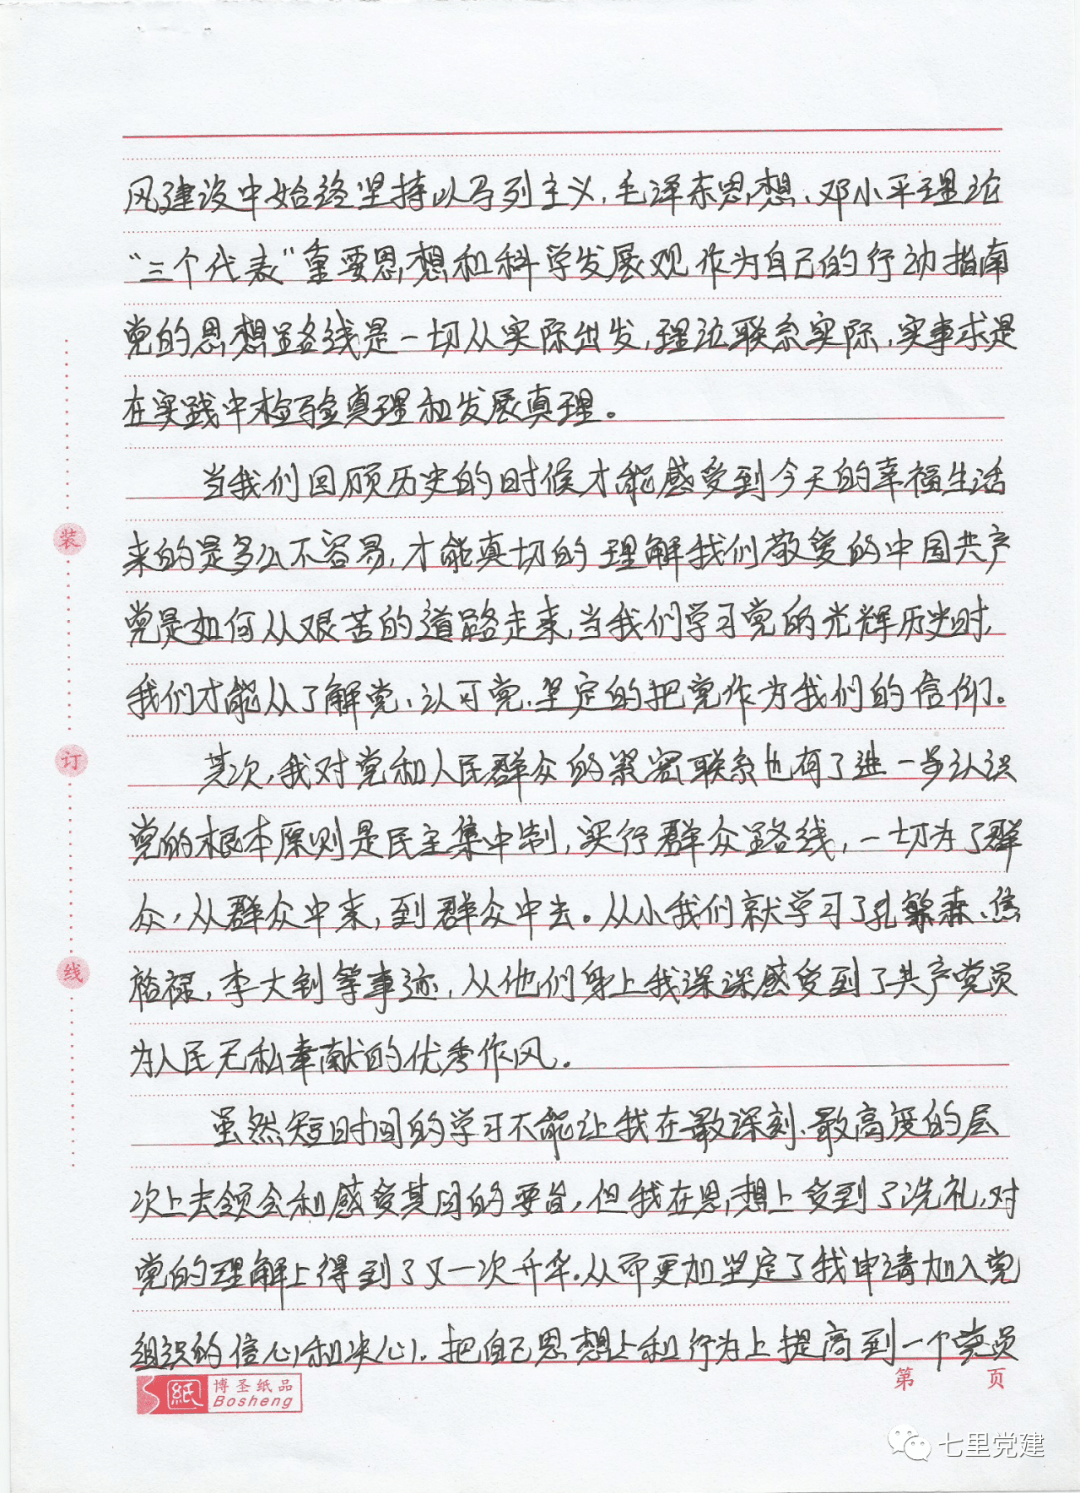 风建设中始终坚持以马列主义,毛泽东思想、邓小平理论
“三个代表”重要思想和科学发展观作为自己的行动指南
党的思想路线是一切从实际出发,理论联系实际,实事求是
在实践中检验真理和发展真理。
当我们回顾历史的时候才能感受到今天的幸福生活
来的是多么不容易,才能真切的理解我们敬爱的中国共产
党是如何从艰苦的道路走来,当我们学习党的光辉历史时,
我们才能从了解党、认可党、坚定的把党作为我们的信仰。
其次,我对党和人民群众的紧密联系也有了进一步认识
党的根本原则是民主集中制,实行群众路线,一切为了群
众,从群众中来,到群众中去。从小我们就学习了孔繁森、焦
裕禄,李大钊等事迹,从他们身上我深深感受到了共产党员
为人民无私奉献的优秀作风。
虽然短时间的学习不能让我在最深刻、最高度的层
次上去领会和感受其因的要旨,但我在思想上受到了洗礼,对
党的理解上得到了又一次升华。从而更加坚定了我申请加入党
组织的信心和决心。把自己思想上和行为上提高到一个党员
装
订
线
纸
博圣纸品
Bosheng
第 页
七里党建